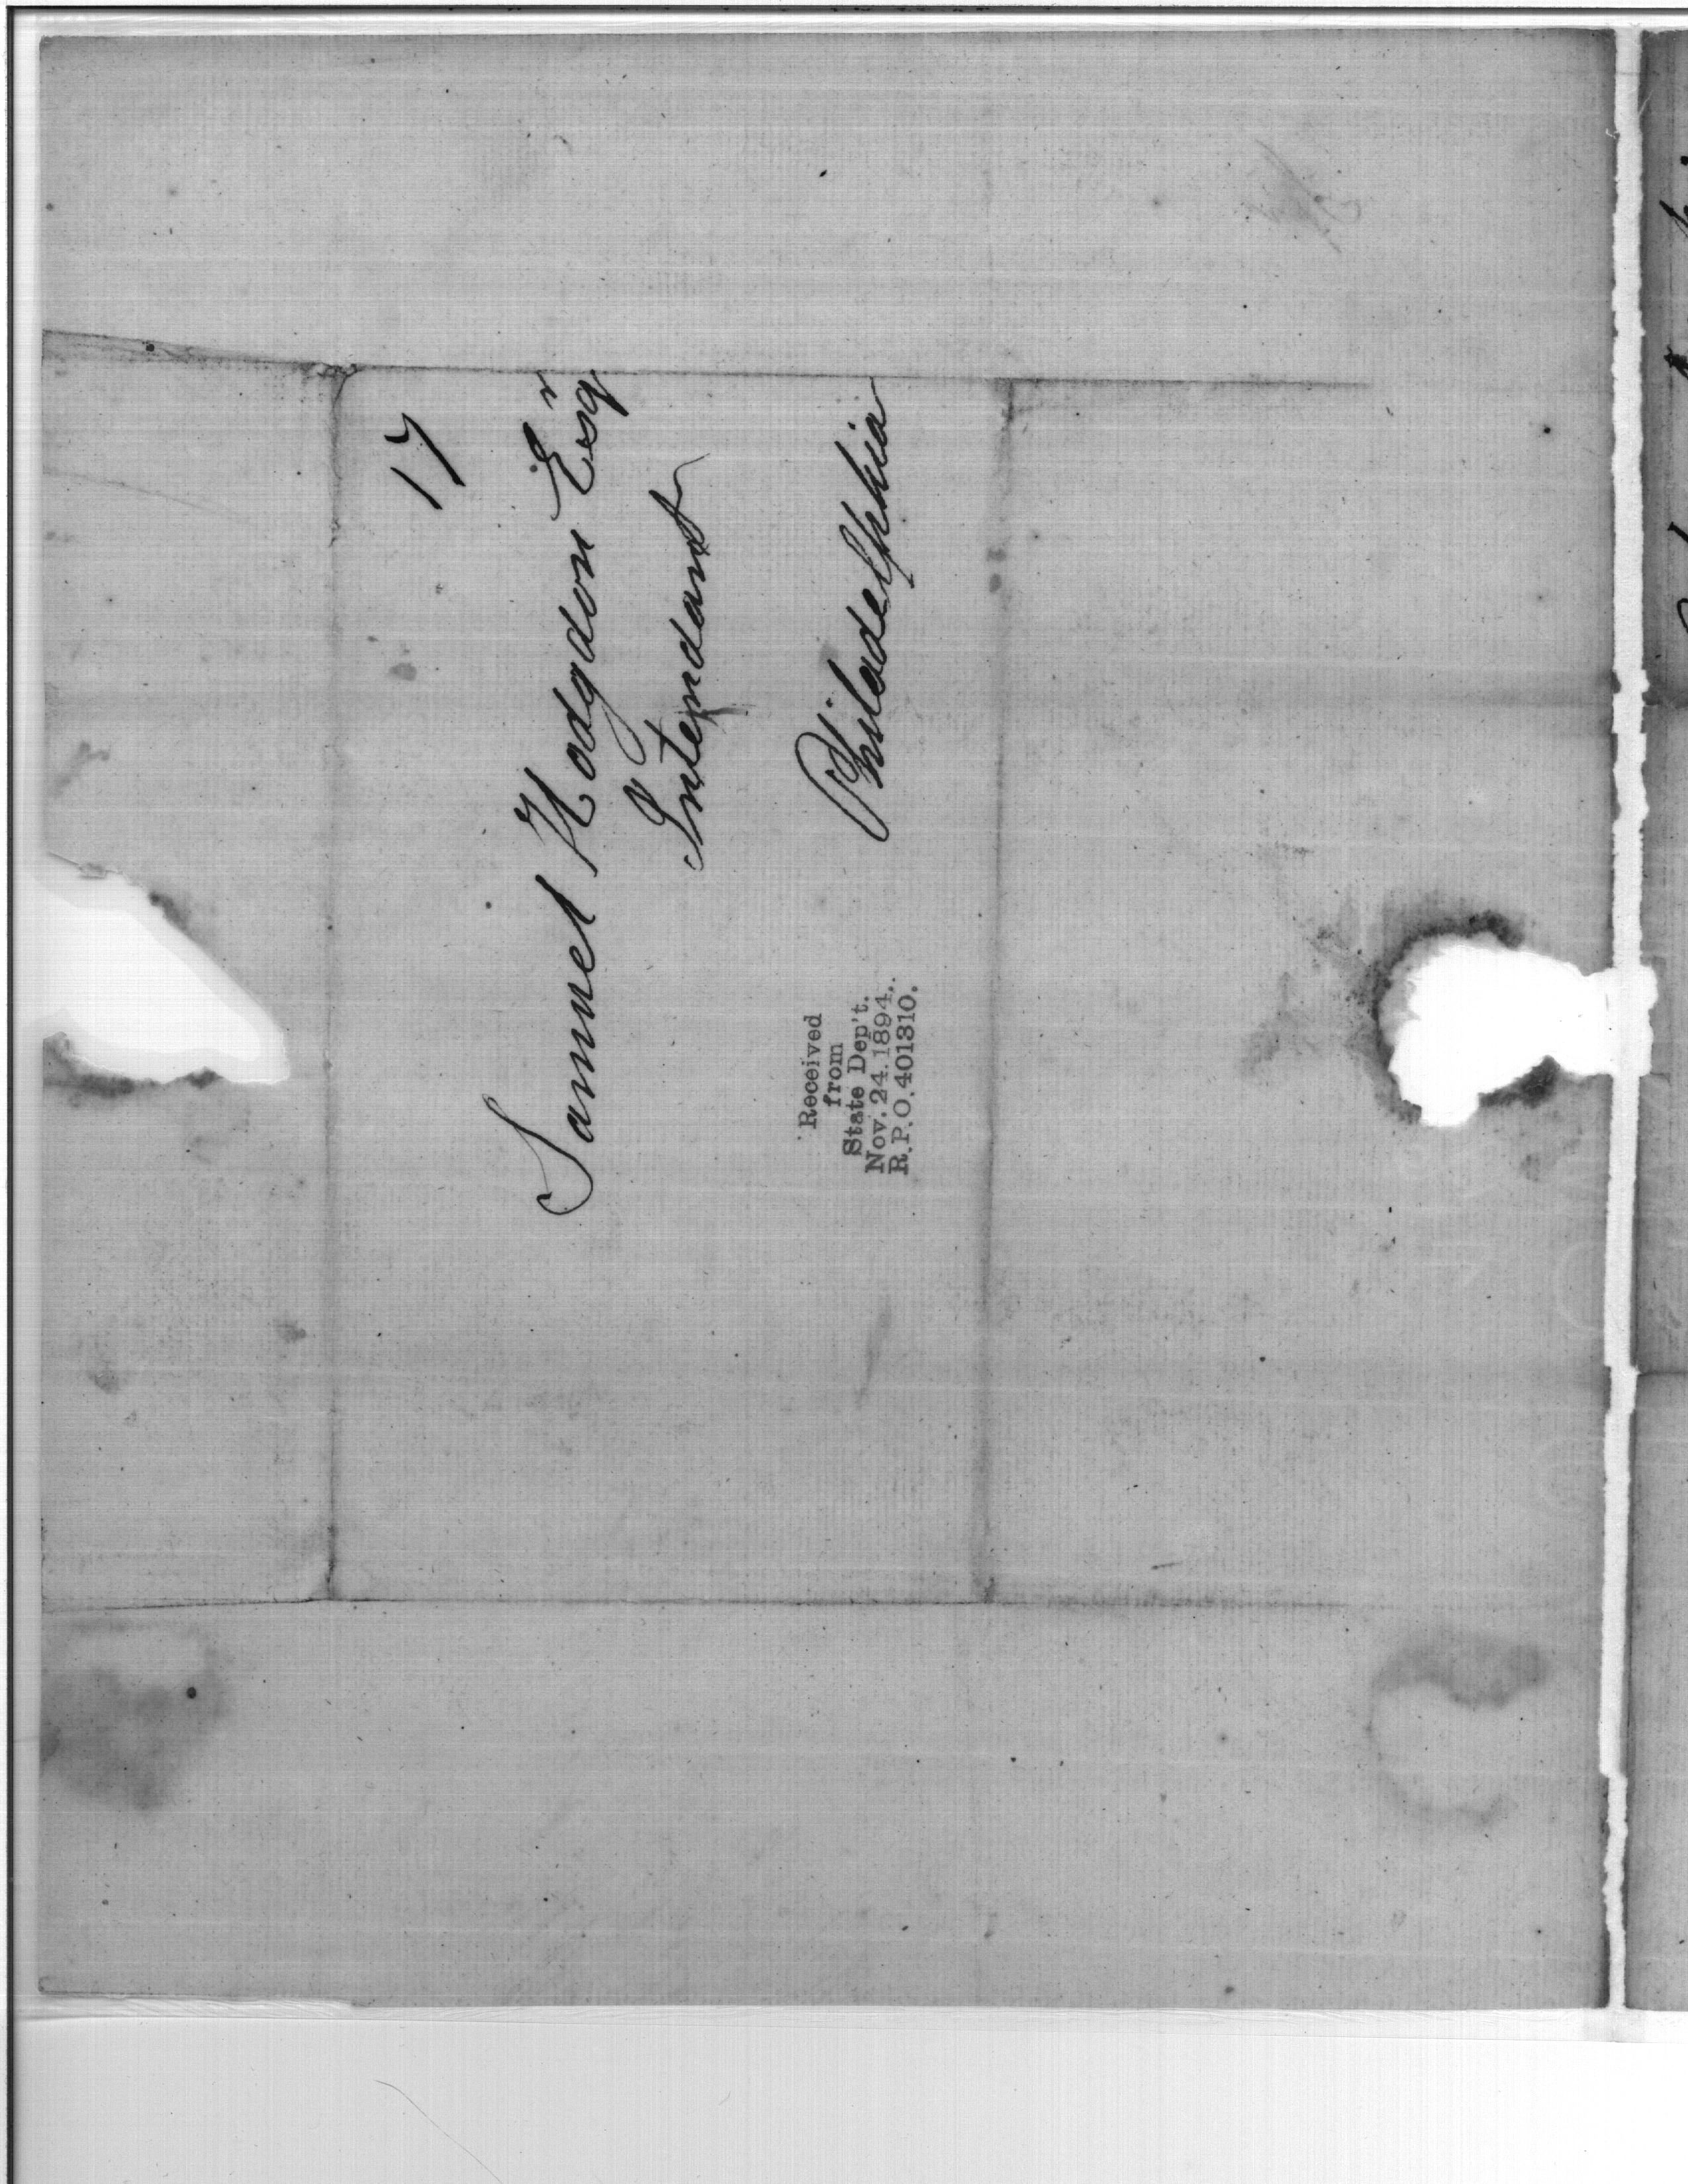 17
Samuel Hodgdon Esqr
Intendant
Philadelphia
Received
from
State Dep't.
Nov. 24. 1894.
R.P.O. 401310.